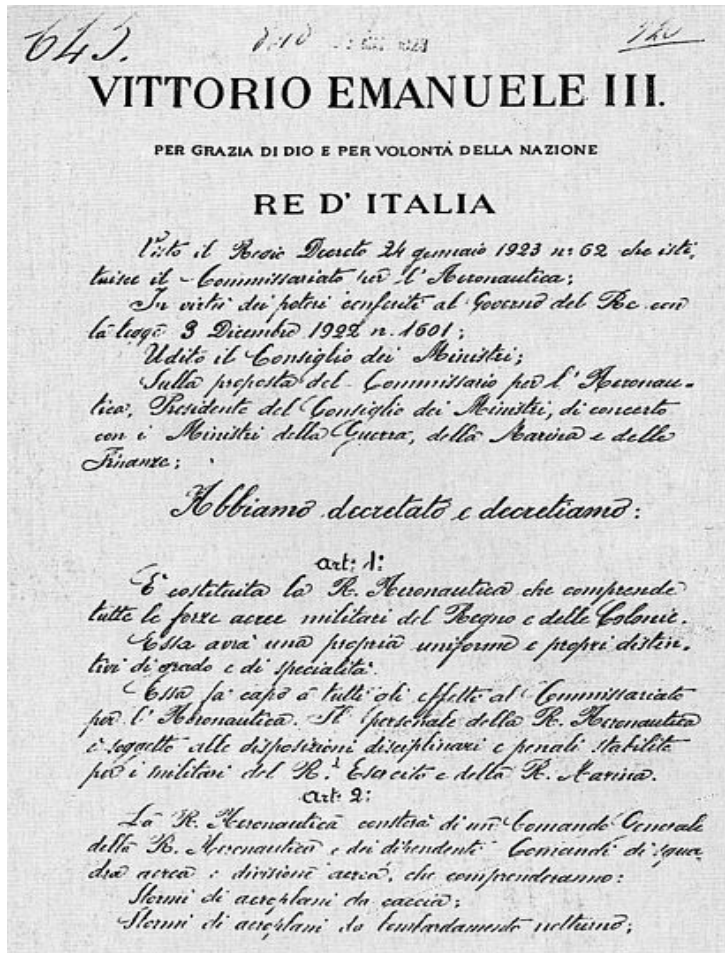 645.
VITTORIO EMANUELE III.
PER GRAZIA DI DIO E PER VOLONTÀ DELLA NAZIONE
RE D' ITALIA
Visto il Regio Decreto 24 gennaio 1923 n: 62 che isti,
tuisce il Commissariato per l'Aeronautica;
In virtù dei poteri conferiti al Governo del Re con
la legge 3 Dicembre 1922 n. 1601;
Udito il Consiglio dei Ministri;
Sulla proposta del Commissario per l'Aeronau-
tica, Presidente del Consiglio dei Ministri, di concerto
con i Ministri della Guerra, della Marina e delle
Finanze;
Abbiamo decretato e decretiamo:
Art: 1:
E' costituita la R. Aeronautica che comprende
tutte le forze aeree militari del Regno e delle Colonie.
Essa avrà una propria uniforme e propri distin-
tivi di grado e di specialità.
Essa fa capo a tutti gli effetti al Commissariato
per l'Aeronautica. Il personale della R. Aeronautica
è soggetto alle disposizioni disciplinari e penali stabilite
per i militari del R. Esercito e della R. Marina.
Art: 2:
La R. Aeronautica consterà di un Comando Generale
della R. Aeronautica e dei dipendenti Comandi di squa
dra aerea e divisione aerea, che comprenderanno:
Stormi di aeroplani da caccia;
Stormi di aeroplani da bombardamento notturno;